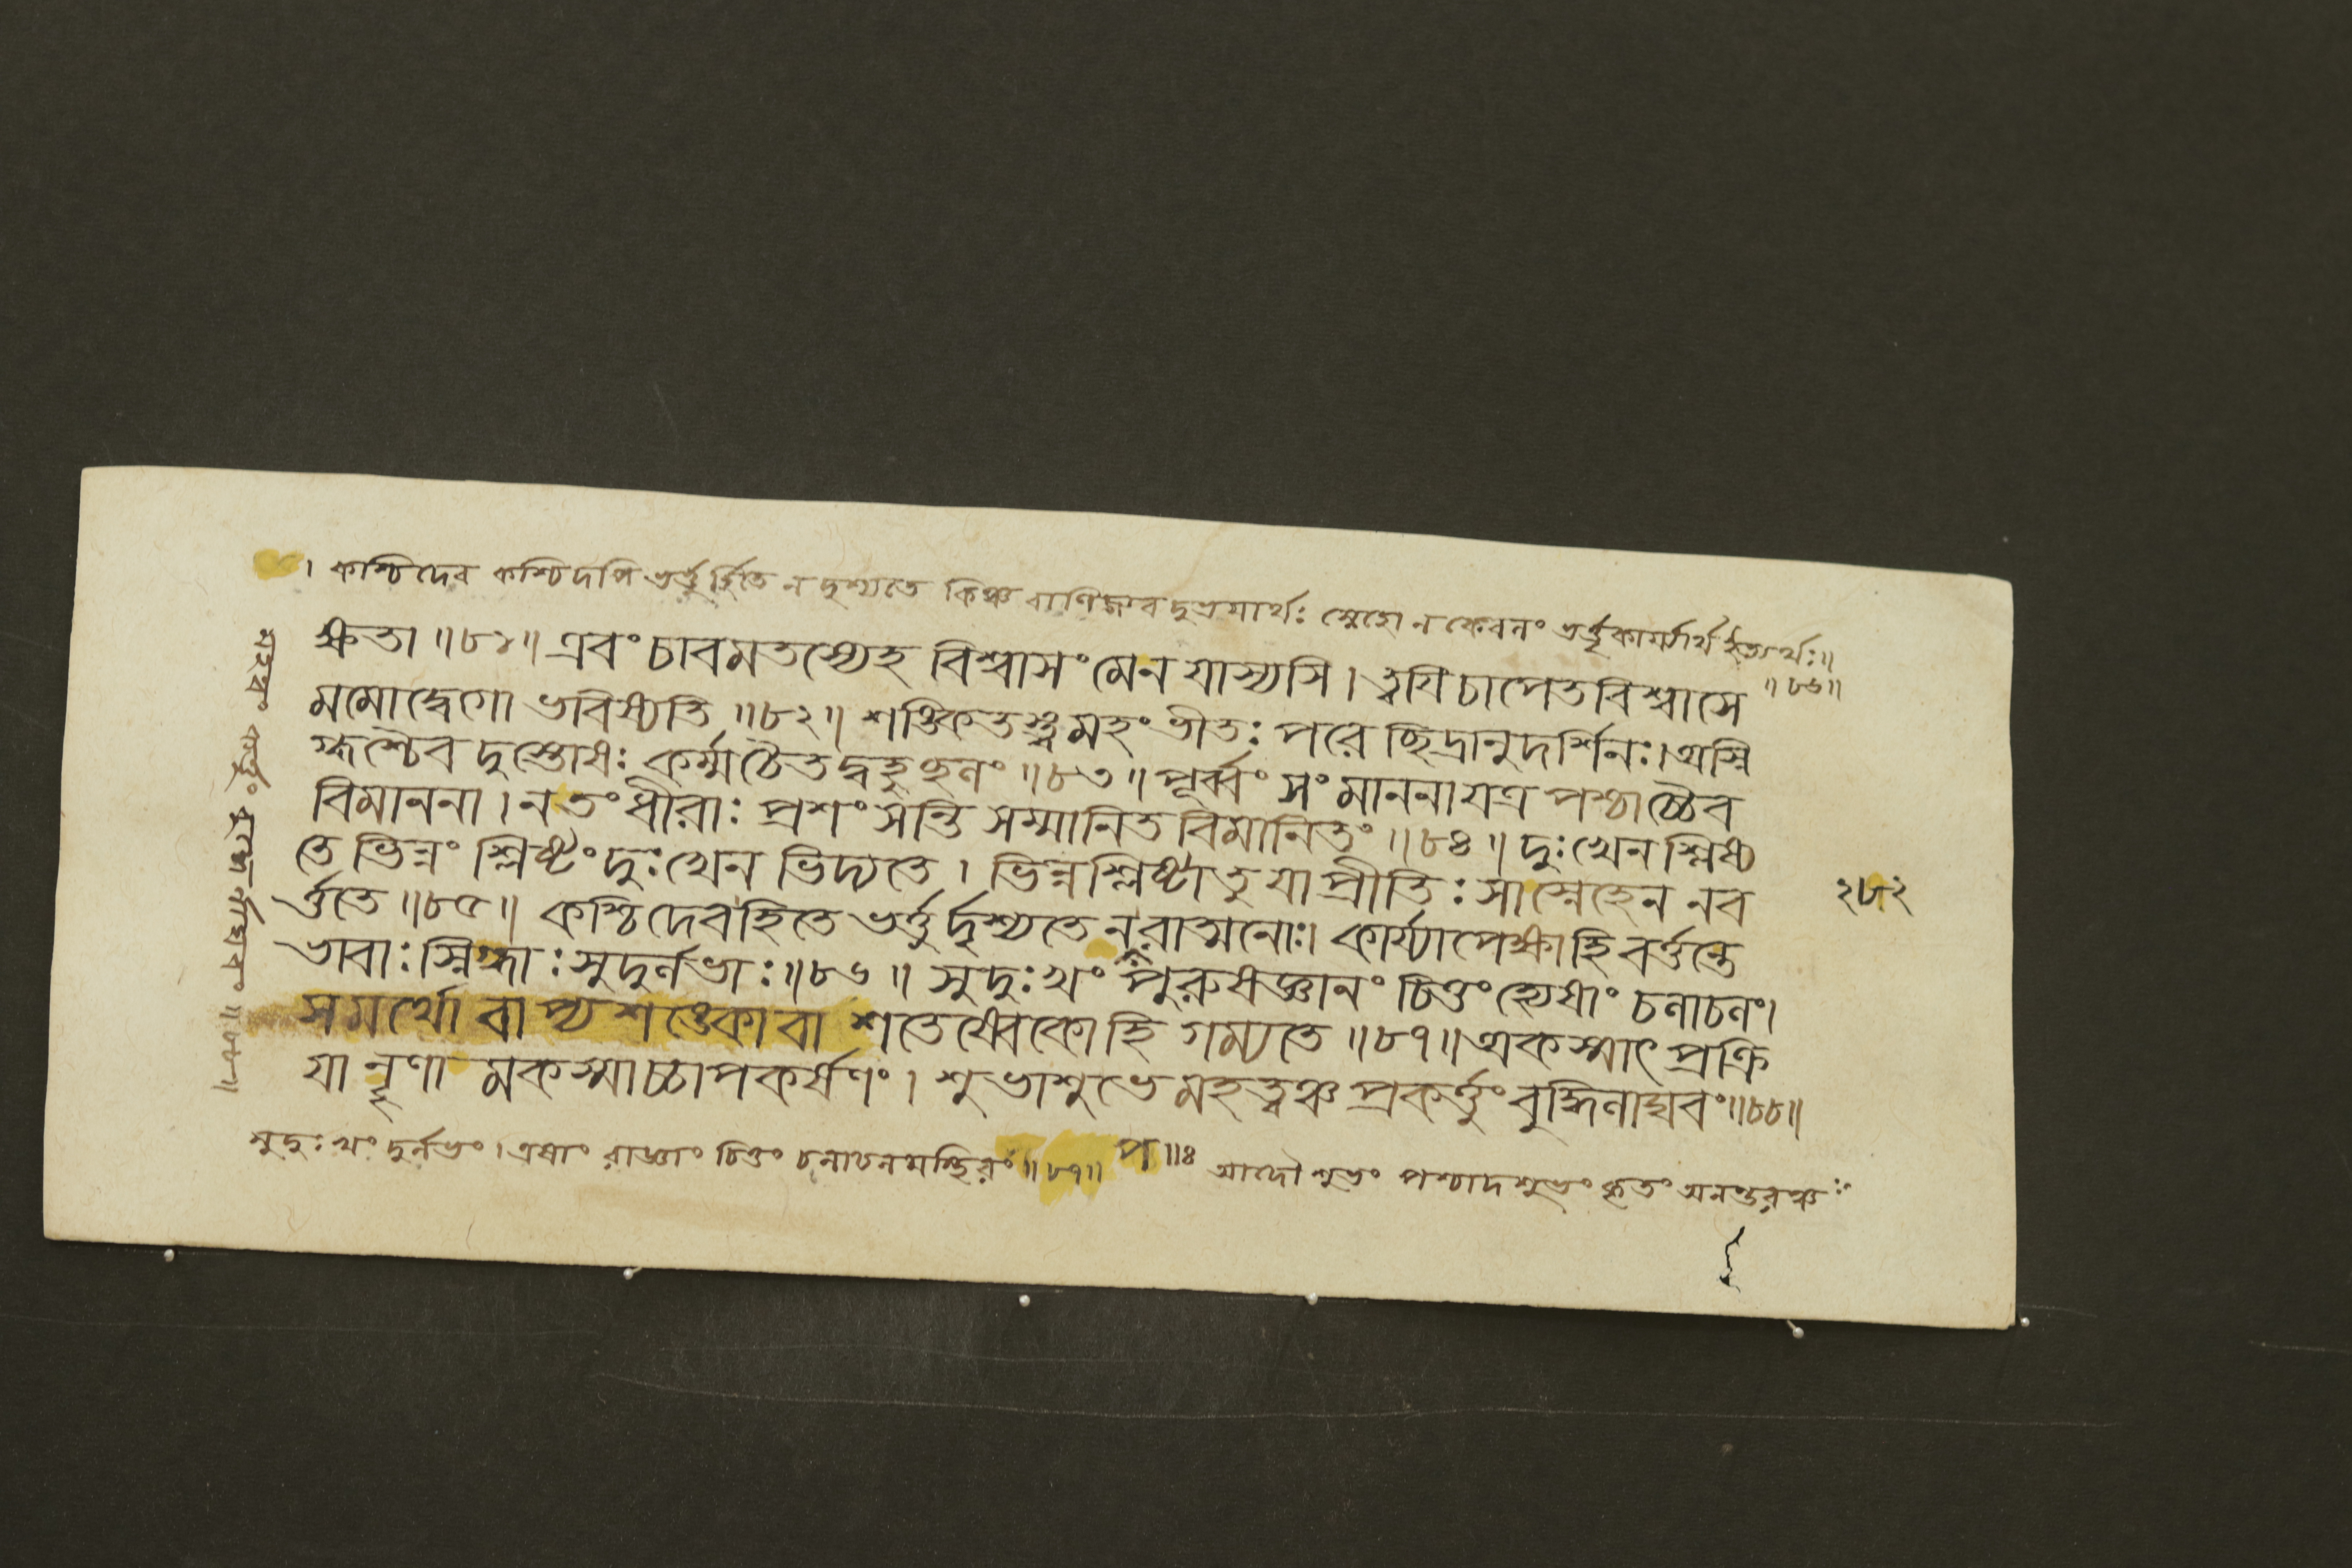 । কশ্চিদেব কশ্চিদপি ভর্ত্তুর্হিতে ন দৃশ্যতে কিঞ্চ বাণিজ্যবদুভয়ার্থঃ স্নেহো ন কেবলং ভর্ত্তৃকার্য্যার্থ ইত্যর্থঃ॥
॥৮৬॥
ক্ষতা ॥৮১॥ এবং চাবমতস্যেহ বিশ্বাসং মেন যাস্যসি । ত্বযি চাপেতবিশ্বাসে
মমোদ্বেগো ভবিষ্যতি ॥৮২॥ শঙ্কিতস্ত্বমহং ভীতঃ পরে ছিদ্রানুদর্শিনঃ। অস্নি
গ্ধশ্চৈব দুস্তোষঃ কর্ম্মচৈতদ্বহুছলং ॥৮৩॥ পূর্ব্বং সংমাননা যত্র পশ্চাচ্চৈব
বিমাননা । ন তং ধীরাঃ প্রশংসন্তি সম্মানিতবিমানিতং ॥৮৪॥ দুঃখেন শ্লিষ্য
তে ভিন্নং শ্লিষ্টং দুঃখেন ভিদ্যতে । ভিন্নশ্লিষ্টা তু যা প্রীতিঃ সা স্নেহেন ন ব
র্ত্ততে ॥৮৫॥ কশ্চিদেব হিতে ভর্ত্তুর্দৃশ্যতে ন রাত্মনোঃ। কার্য্যাপেক্ষা হি বর্ত্তন্তে
২৮২
ভাবাঃ স্নিগ্ধাঃ সুদুর্লভাঃ॥৮৬॥ সুদুঃখং পুরুষজ্ঞানং চিত্তং হ্যেষাং চলাচলং।
সমর্থো বাপ্যশক্তো বা শতেষ্বেকো হি গম্যতে ॥৮৭॥ অকস্মাৎ প্রক্রি
যা নৃণামকস্মাচ্চাপকর্ষণং । শুভাশুভে মহত্ত্বঞ্চ প্রকর্ত্তুং বুদ্ধিলাঘবং॥৮৮॥
সুদুঃখং দুর্লভং । এষাং রাজ্ঞাং চিত্তং চলাচলমস্থিরং ॥৮৭॥ প ॥ঃ আদৌ শুভং পশ্চাদশুভং কৃতং অনন্তরঞ্চ
মহত্বং কর্ত্তুং বুদ্ধের্লাঘবং ॥৮৮॥